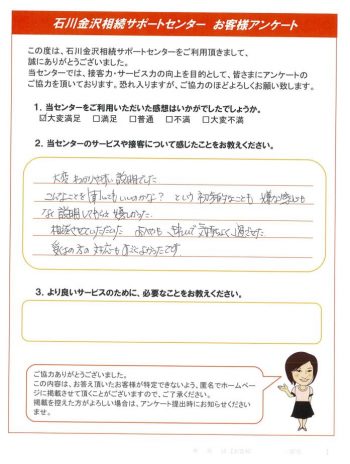 石川金沢相続サポートセンター お客様アンケート
この度は、石川金沢相続サポートセンターをご利用頂きまして、
誠にありがとうございました。
当センターでは、接客力・サービス力の向上を目的として、皆さまにアンケートの
ご協力を頂いております。恐れ入りますが、ご協力のほどよろしくお願い致します。
1. 当センターをご利用いただいた感想はいかがでしたでしょうか。
☑大変満足 □満足 □普通 □不満 □大変不満
2. 当センターのサービスや接客について感じたことをお教えください。
大変わかりやすい説明でした
こんなことを聞いてもいいのかな? という初歩的なことも 嫌な感じも
なく説明してもらえ嬉しかった
相談させていただいた
の方の対応もまたよかったです
3. より良いサービスのために、必要なことをお教えください。
ご協力ありがとうございました。
この内容は、お答え頂いたお客様が特定できないよう、匿名でホームペー
ジに掲載させて頂くことがございますので、ご了承ください。
掲載を控えた方がよろしい場合は、アンケート提出時にお知らせくださ
いませ。